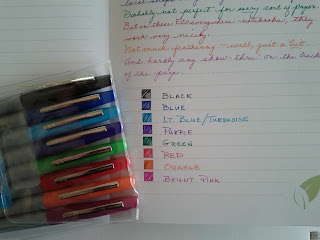 Probably not perfect for every sort of paper.
But in these Ecosystem notebooks, they
work very nicely.
Not much feathering - well, just a bit
And hardly any show-thru on the back
of the page.
BLACK
BLUE
LT. BLUE/TURQUOISE
PURPLE
GREEN
RED
ORANGE
BRIGHT PINK